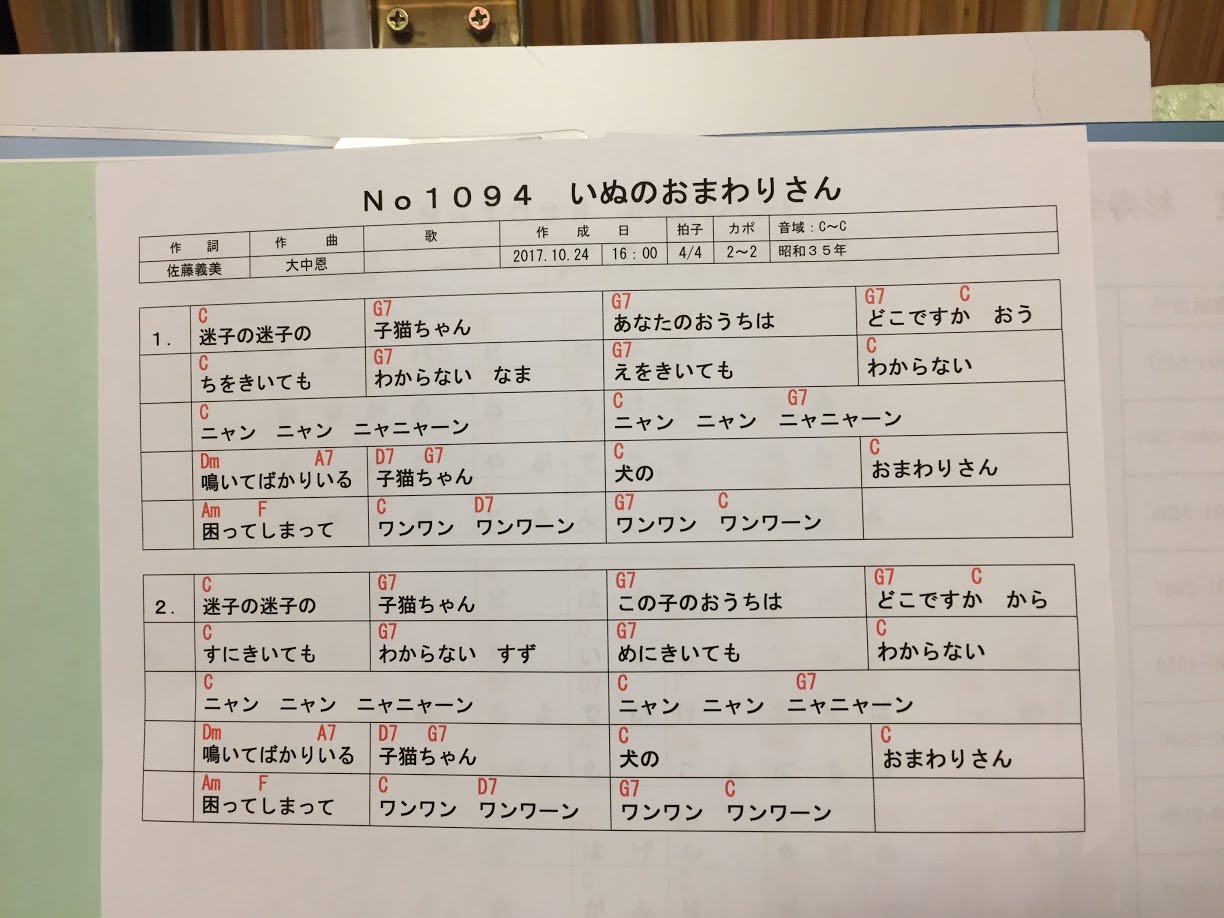 No1094 いぬのおまわりさん
作詞 作曲 歌 作成日 拍子 カポ 音域：C～C
佐藤義美 大中恩 2017.10.24 16：00 4/4 2～2 昭和３５年
C G7 G7 G7 C
1. 迷子の迷子の 子猫ちゃん あなたのおうちは どこですか おう
C G7 G7 C
ちをきいても わからない なま えをきいても わからない
C C G7
ニャン ニャン ニャニャーン ニャン ニャン ニャニャーン
Dm A7 D7 G7 C C
鳴いてばかりいる 子猫ちゃん 犬の おまわりさん
Am F C D7 G7 C
困ってしまって ワンワン ワンワーン ワンワン ワンワーン
C G7 G7 G7 C
2. 迷子の迷子の 子猫ちゃん この子のおうちは どこですか から
C G7 G7 C
すにきいても わからない すず めにきいても わからない
C C G7
ニャン ニャン ニャニャーン ニャン ニャン ニャニャーン
Dm A7 D7 G7 C C
鳴いてばかりいる 子猫ちゃん 犬の おまわりさん
Am F C D7 G7 C
困ってしまって ワンワン ワンワーン ワンワン ワンワーン